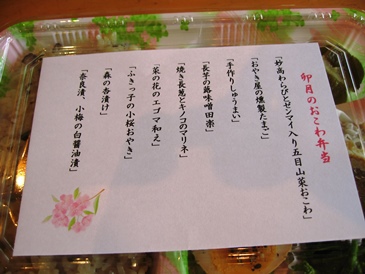 卯月のおこわ弁当
「妙高わらびとゼンマイ入り五目山菜おこわ」
「おやき屋の燻製たまご」
「手作りしゅうまい」
「長芋の蕗味噌田楽」
「焼き長葱とキノコのマリネ」
「菜の花のエゴマ和え」
「ふきっ子の小桜おやき」
「森の杏漬け」
「奈良漬、小梅の白醤油漬」